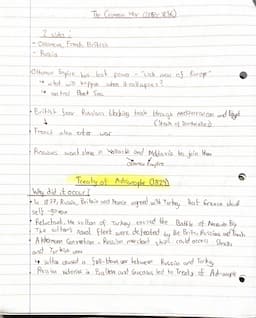 The Crimean War (1853-1856)
2 sides:
- Ottoman, French, British
- Russia
Ottoman Empire has lost power - "sick man of Europe"
↳ what will happen when it collapses?
↳ control Black Sea
• British fear Russians blocking trade through mediterranean and Egypt
• French also enter war
• Russians went alone in Wallachia and Moldavia to join them
Ottoman Empire
Treaty of Adrianople (1829)
Why did it occur?
• In 1827, Russia, Britain and France agreed with Turkey that Greece should
self-
• Reluctant, the sultan of Turkey the Battle of Navarino Bay
• The sultan's naval fleet were defeated by the Brits, Russians and French
• Akkerman Convention - Russian merchant ships could access Straits
and Turkish
↳ sultan caused a full-blown war between Russia and Turkey
Russian victories in Balkans and Caucasus led to Treaty of Adrianople